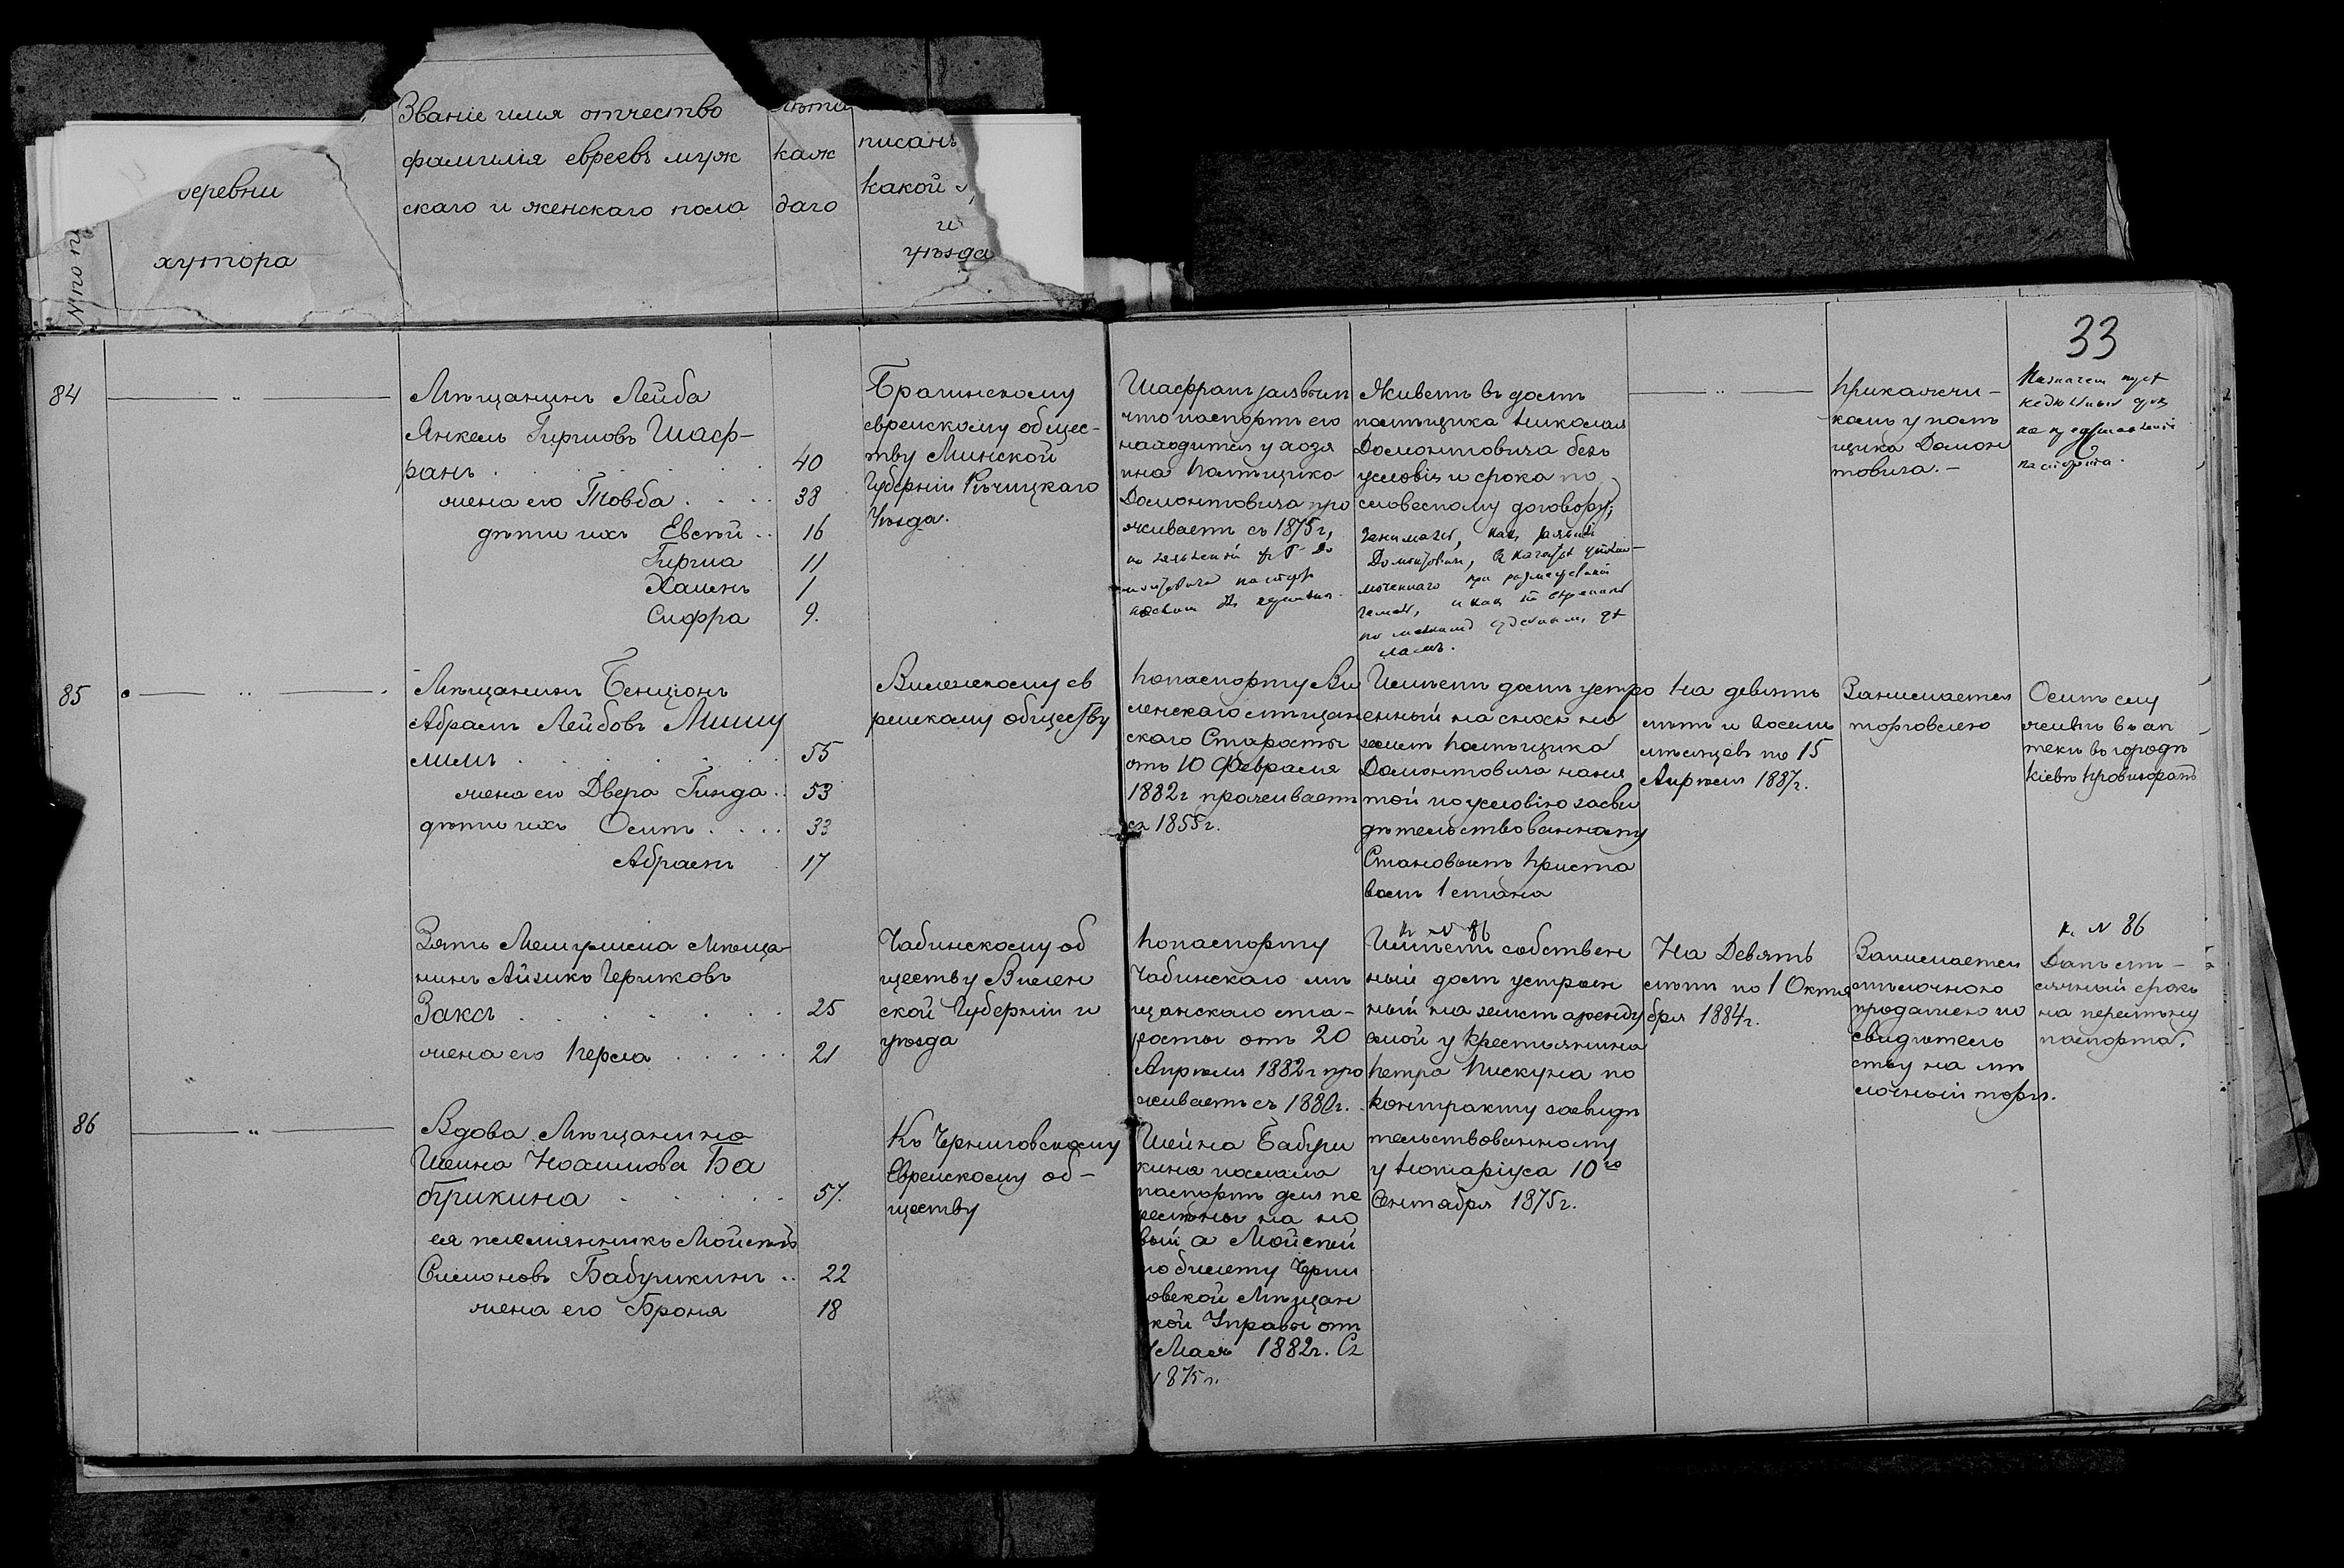 деревни
хутора
Званіе имя отчество
фамилія евреевъ муж
скаго и женскаго пола
лѣта
каж
даго
писанъ
какой
и
уѣзда
33
84
Мѣщанинъ Лейба
Янкель Гиршовъ Шаф-
ранъ 40
жена его Товба 38
дѣти ихъ Евсѣй 16
Гирша 11
Хаимъ 1
Сифра 9.
Брагинскому
еврейскому общес-
тву Минской
Губерніи Рѣчицкаго
Уѣзда.
Шафранъ заявилъ
что паспортъ его
находится у хозя
ина Помѣщика
Домонтовича про
живаетъ съ 1875 г,
Живетъ въ домѣ
помѣщика Николая
Домонтовича безъ
условія и срока по
словесному договору;
Прикащи-
комъ у помѣ
щика Домон
товича.-
паспорта.
85
Мѣщанинъ Бенціонъ
Абрамъ Лейбовъ
55
жена его Двера Гинда 53
дѣти ихъ Осипъ 33
Абрамъ 17
Виленскому ев
рейскому обществу
По паспорту Ви
ленскаго мѣщан
скаго Старосты
отъ 10 Февраля
1882 г проживаетъ
съ 1855 г.
Имѣетъ домъ устро
енный на сносъ на
землѣ помѣщика
Домонтовича наня
той по условію засви
дѣтельствованному
Становымъ Приста
вомъ 1 стана
На девять
лѣтъ и восемь
мѣсяцевъ по 15
Апрѣля 1887 г.
Занимается
торговлею
Осипъ сму
живетъ въ ап
теки въ городѣ
Кіевѣ Провизоромъ
Зять Мешумима Мѣща-
нинъ Айзикъ Цериковъ
Заксъ 25
жена его Перла 21
Чабинскому об
ществу Вилен
ской Губерніи и
уѣзда
По паспорту
Чабинскаго мѣ
щанскаго ста-
росты отъ 20
Апрѣля 1882 г про
живаетъ съ 1880 г.
к № 86
Имѣетъ собствен
ный домъ устроен
ный на землѣ арендуе
емой у Крестьянина
Петра Пискуна по
контракту засвидѣ
тельствованному
у Нотаріуса 10го
Сентября 1875 г.
На Девять
лѣтъ по 1 Октя
бря 1884 г.
Занимается
мѣлочною
продажею по
свидѣтель
ству на мѣ
лочный торгъ.
к № 86
Данъ мѣ-
сячный срокъ
на перемѣну
паспорта.
86
Вдова Мѣщанина
Шейна Нохимова Ба
бушкина 57.
ея племянникъ Мойсѣй
Симоновъ Бабушкинъ 22
жена его Броня 18
Къ Черниговскому
Еврейскому об-
ществу
Шейна Бабуш
кина послала
паспортъ для пе
ремѣны на но
вый а Мойсѣй
по билету Черни
овской Мѣщан
кой Управы отъ
Мая 1882 г. Съ
1875 г.